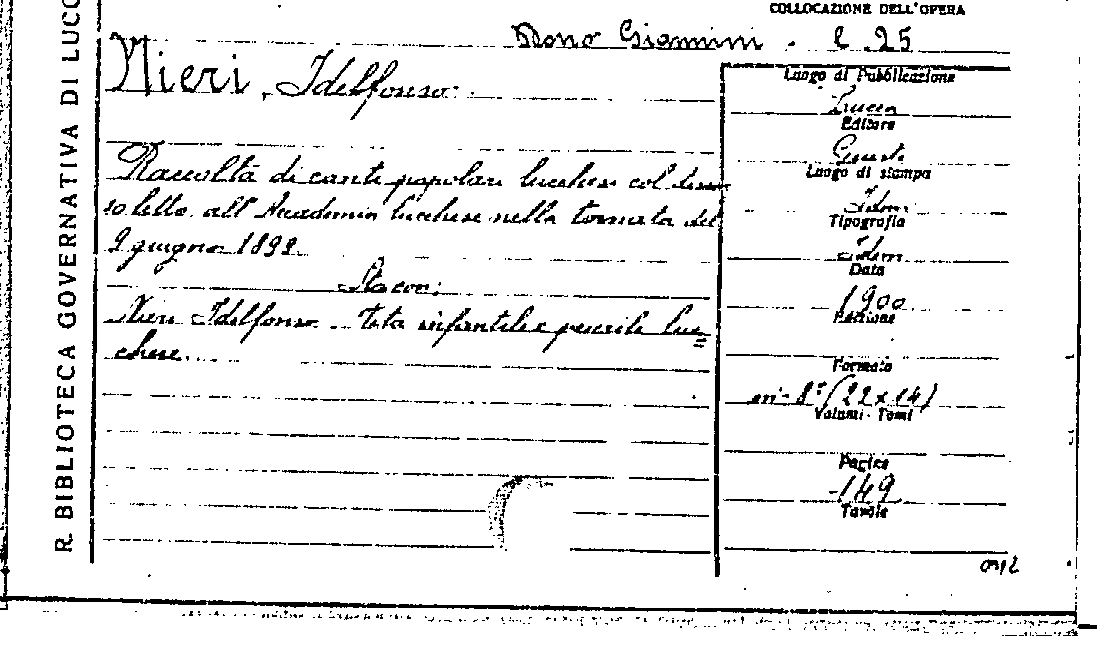 COLLOCAZIONE DELL'OPERA
Dono Giannini. C. 25
R. BIBLIOTECA GOVERNATIVA DI LUCC
Nieri, Idelfonso.
Raccolta di canti popolari lucchesi col
so letto all'Academia lucchese nella tornata del
9 giugno 1892.
Sta con:
Nieri Idelfonso. Vita infantile e puerile luc=
chese.
Luogo di Pubblicazione
Lucca
Editore
Giusti
Luogo di stampa
Idem
Tipografia
Idem
Data
1900
Edizione
Formato
in-8° (22x14)
Volumi - Tomi
Pagine
149
Tavole